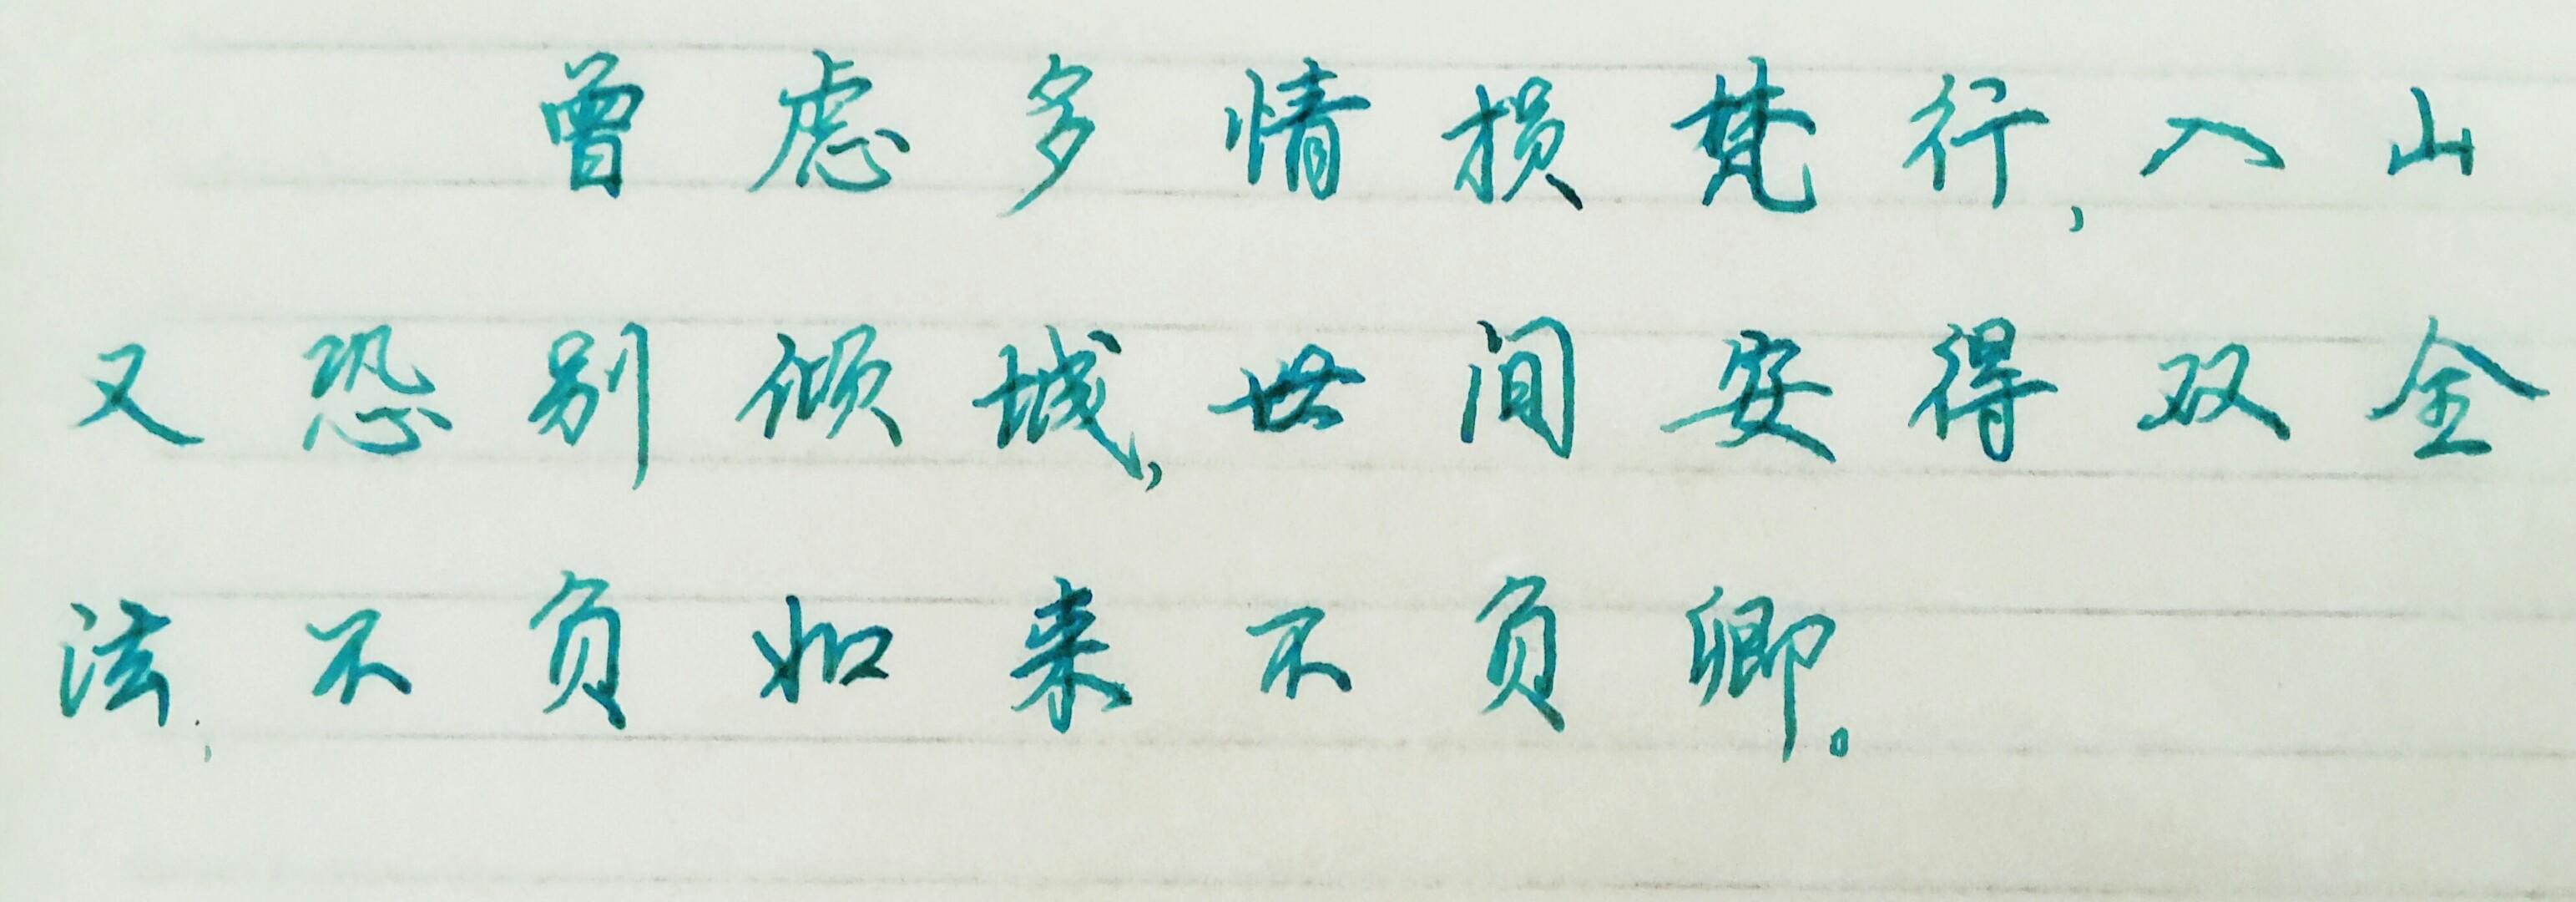 曾虑多情损梵行,入山
又恐别倾城,世间安得双全
法,不负如来不负卿。